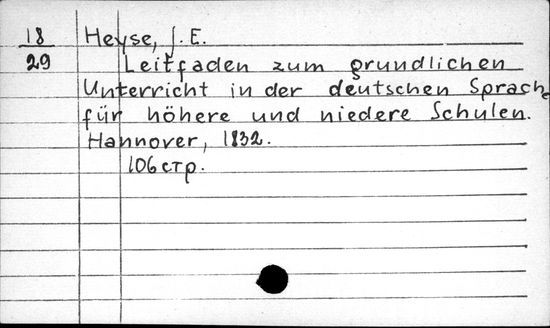 18 Heyse, J. E.
29 Leitfaden zum grundlichen
Unterricht in der deutschen Sprache
für höhere und niedere Schulen.
Hannover, 1832.
106 стр.